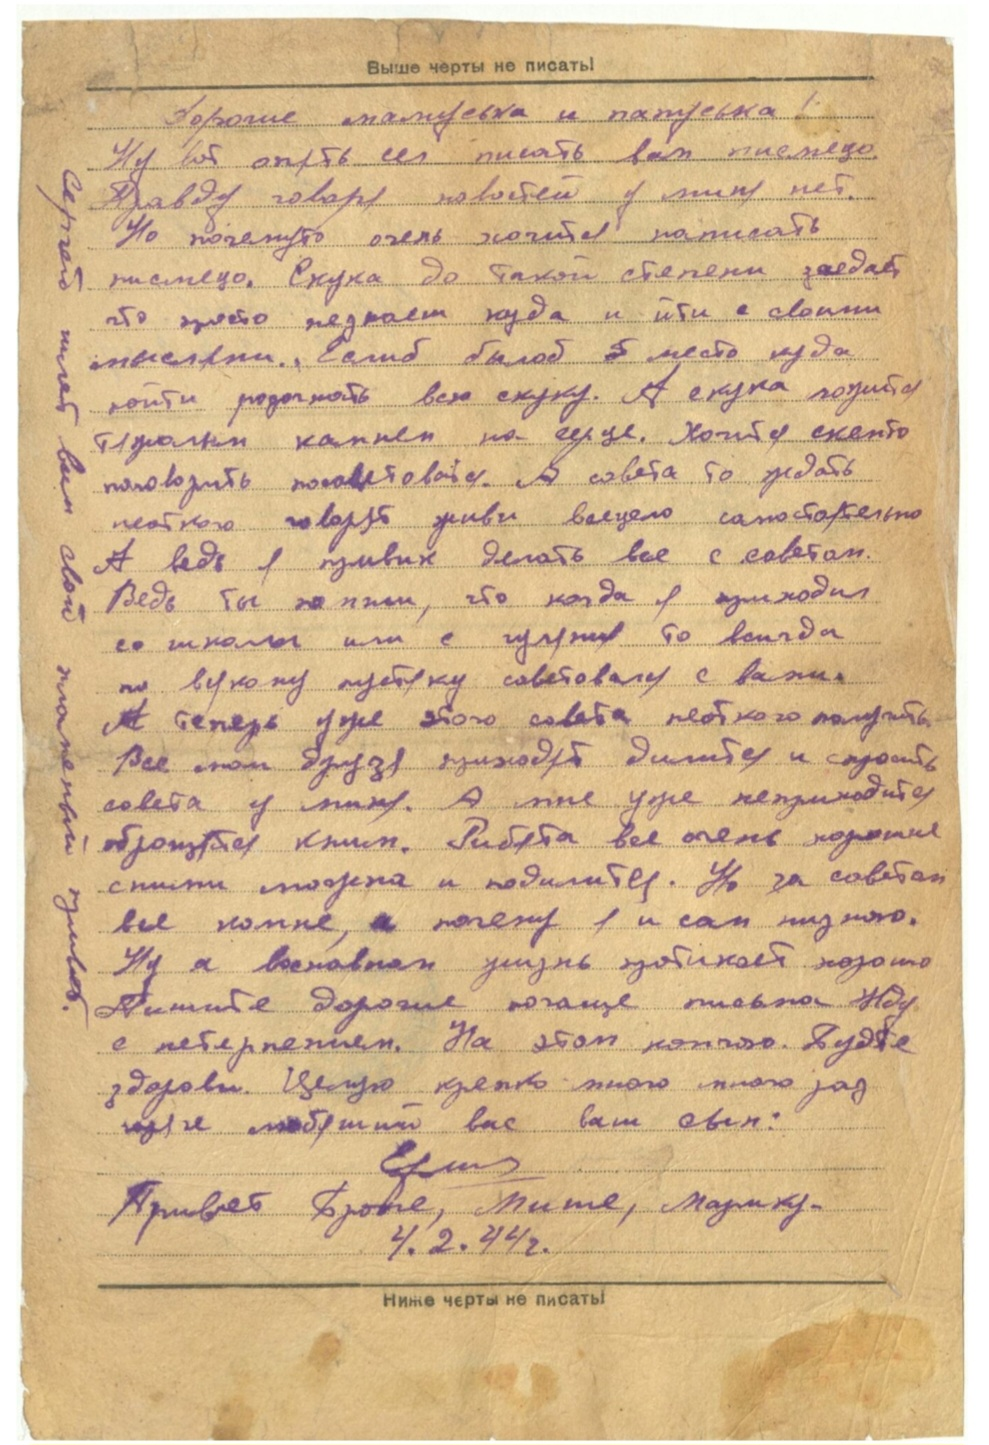 Выше черты не писать!
Дорогие мамуська и папуська!
Ну вот опять сел писать вам письмецо.
Правду говоря новостей у миня нет.
Но почемуто очень хочится написать
письмецо. Скука до такой степени заедает
что просто незнаеш куда и йти с своими
мыслями. Еслиб былоб место куда
пойти разогнать всю скуку. А скука ложится
тяжолым камнем на серце. Хочится скемто
поговорить посоветоватся. А совета то ждать
неоткого говорят живи всецело самостоятельно
А ведь я привик делать все с советом.
Ведь ты помниш, что когда я приходил
со школы или с гуляния то всигда
по всякому пустяку советовался с вами.
А теперь уже этого совета неоткого получить.
Все мои друзя приходят дилится и спросить
совета у миня. А мне уже неприходится
обращятся кним. Рибята все очень хорошие
сними можна и подилится. Но за советом
все комне, а почему я и сам низнаю.
Ну а восновном жизнь протикает хорошо
Пишите дорогие почаще письма Жду
с нетерпением. На этом кончаю. Будте
здорови. Целую крепко много много рад
горяче любящий вас ваш сын:
Привет Броне, Мише, Марику.
4.2.44г.
Ниже черты не писать!
Сергей шлет вам свой пламеный привет.